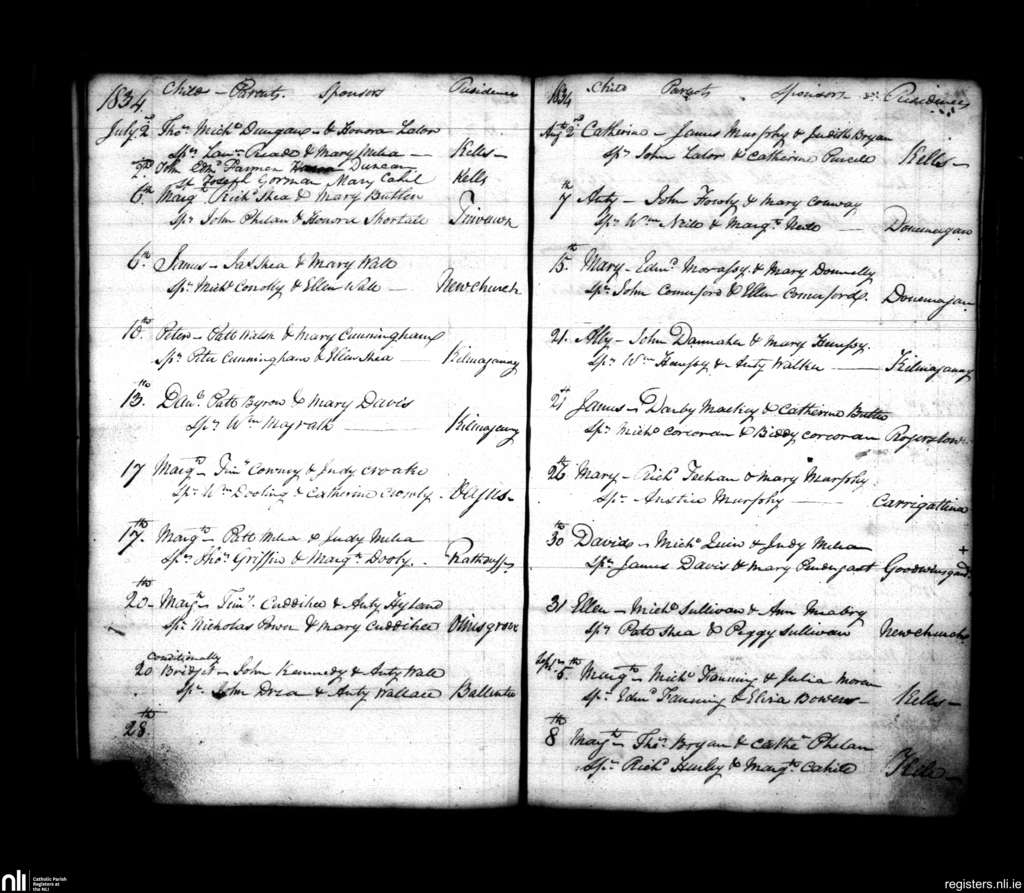 1834 Child - Parents. Sponsors Residence
July 2d Thos. Michl. Dungan & Honora Lalor
Sprs Lawr. Reade & Mary Melia - Kells -
John Edm. Duncan
Sp Joseph Gorman Mary Cahil Kells
6th Margt. Richd. Shea & Mary Butler
Sprs John Phelan & Honora Shortall
6th James - Jas Shea & Mary Wall
Sprs Michl Conolly & Ellen Wall - Newchurch
10th Peter - Patt Walsh & Mary Cunningham
Sprs Peter Cunningham & Ellen Shea - Kilmaganny
13th Danl. Patt Byron & Mary Davis
Spr Wm Magrath - Kilmagany
17 Margt - Timy Conway & Judy Croake
Sprs Wm Dooling & Catherine
17th Margt - Patt Melia & Judy Melia
Sprs Thos. Griffin & Margt. Dooly.
20th Margt - Timy. Cuddihee & Anty Hyland
Sprs Nicholas Power & Mary Cuddihee
conditionally
20 Bridget - John Kennedy & Anty Wall
Sprs John Drea & Anty Wallace
28th
1834 Child Parents Sponsors Residences
Augt 2d Catherine - James Murphy & Judith Bryan
Sprs John Lalor & Catherine Purcell Kells -
7th Anty - John Fowly & Mary Conway
Sprs Wm Neill & Margt. Neill - Donemagan
15th Mary - Edmd. Morassy & Mary Donnelly
Sprs John Comerford & Ellen Comerford. Donemagan
21 Ally - John Dannaher & Mary Hempsy.
Sprs Wm Hempsy & Anty Walker - Kilmaganny
21st James - Darby Mackey & Catherine Butler
Sprs Michl Corcoran & Biddy Corcoran Rogerstown
26th Mary - Richd Teehan & Mary Murphy
Spr - Anstin Murphy - Carrigattina
30th David - Michl Quin & Judy Melia
Sprs James Davis & Mary Pendergast
31 Ellen - Michl Sullivan & Ann
Sprs Patt Shea & Peggy Sullivan Newchurch
Sept. 5th Margt - Michl Fanning & Julia Moran
Sprs Edmd Fanning & Eliza Bowers - Kells -
8th Margt - Thos. Bryan & Cathe Phelan
Sprs Richd Hurly & Margt. Cahill
nli Catholic Parish
Registers at
the NLI
registers.nli.ie